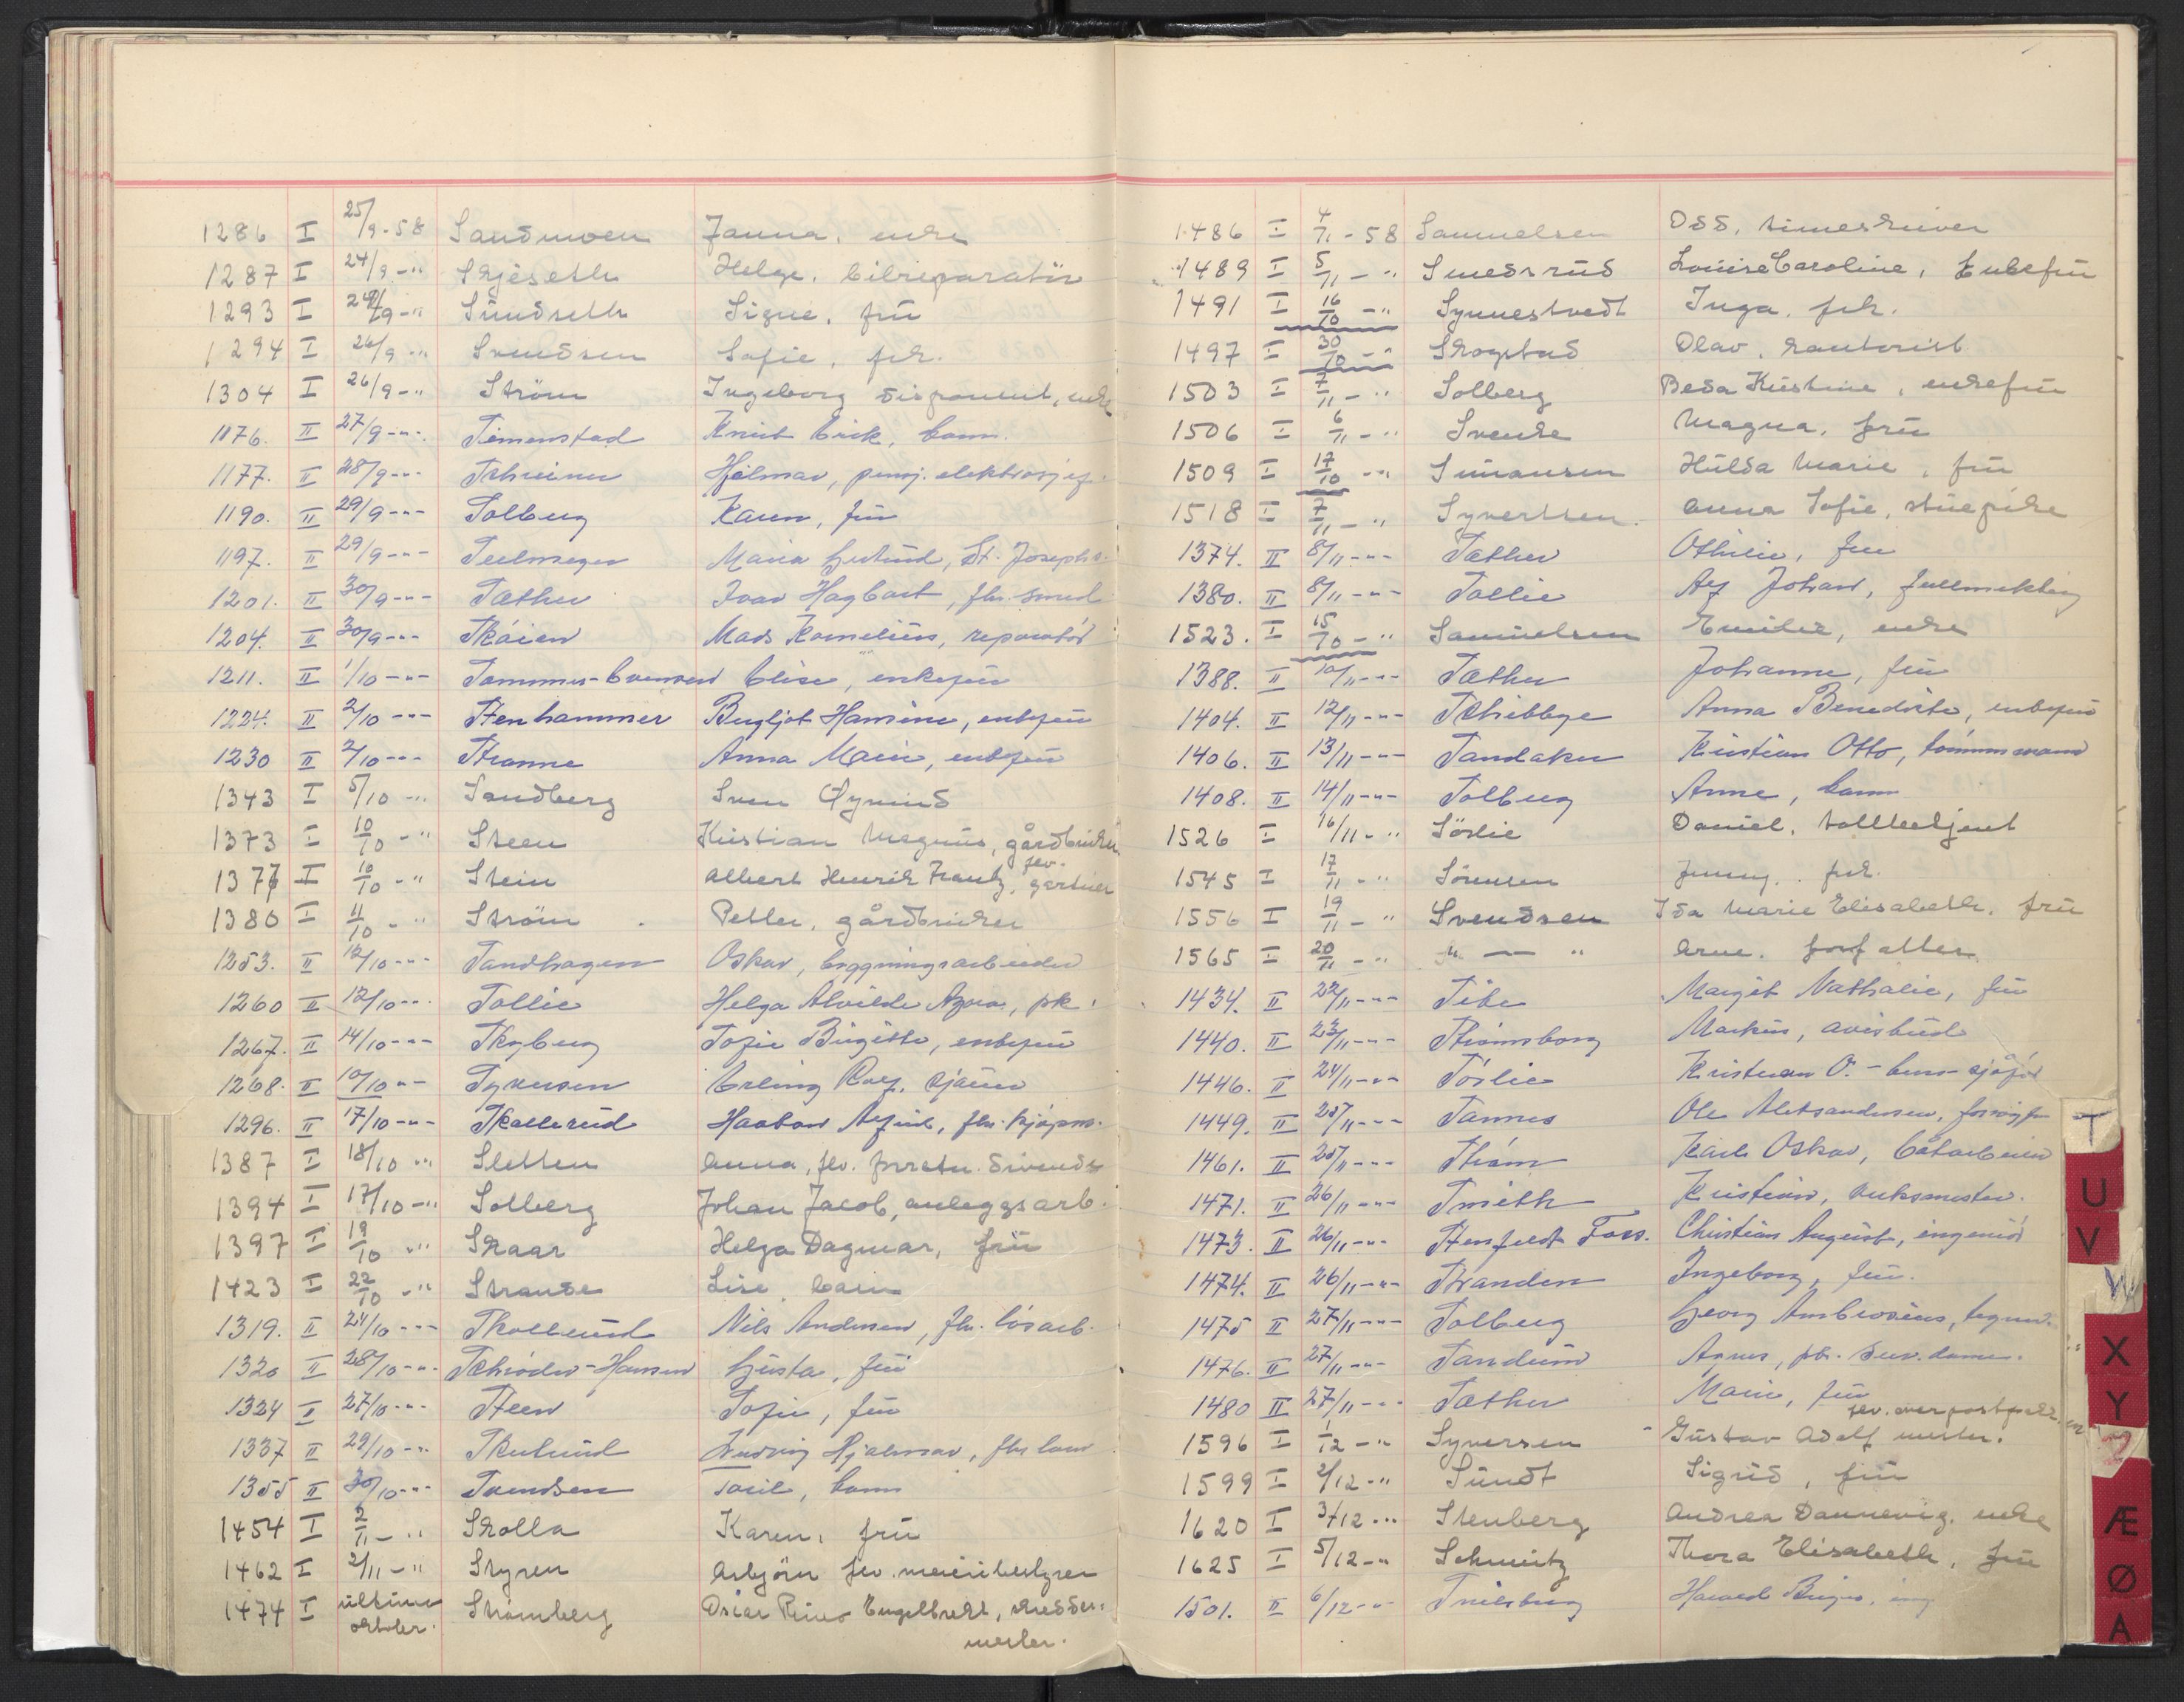 1286 I 25/9-58 Sandmoen Janna, enke
1287 I 24/9-" Skjeseth Helge, bilreparatör
1293 I 24/9-" Sundseth Signe, frü
1294 I 26/9-" Svendsen Sofie, frk.
1304 I 26/9-" Ström Ingeborg disponent, enke
1176. II 27/9-"- Simenstad Knut Erik, barn.
1177. II 28/9-"- Schreiner Hjalmar, pensj. elektrosjef.
1190. II 29/9-"- Solberg Karen, frü
1197. II 29/9-"- Maria Gertrud, St. Josephs.
1201. II 30/9-"- Sæther Ivar Hagbart, fhv. smed
1204. II 30/9-"- Skåien Mads Kornelius, reparatör
1211. II 1/10-"- Sommer-Evensen Elise, enkefrü
1224. II 2/10-"- Stenhammer Bergljot Hansine, enkefrü
1230 II 2/10-"- Stranne Anna Marie, enkefrü
1343 I 5/10-" Sandberg Sven Öyvind
1373 I 10/10-" Steen Kristian Magnus, gårdbruker
1377 I 10/10-" Stein Albert Henrik Frantz, fev. gartner
1380 I 11/10-" Ström Petter, gårdbruker
1253. II 12/10-"- Sandhagen Oskar, bygningsarbeider
1260 II 12/10-"- Sollie Helga Alvilde Azora, pk.
1267. II 14/10-"- Skyberg Sofie Birgitte, enkefrü
1268. II 10/10-"- Syversen Erling Rolf, sjåfør
1296. II 17/10-"- Skallerud Haakon Alfred, fhv. kjøpm.
1387 I 18/10-" Sletten Anna, fev. forstn. Sivends
1394 I 17/10-" Solberg Johan Jacob, anleggsarb.
1397 I 19/10-" Skaar Helga Dagmar, frü
1423 I 22/10-" Strande Lise, barn
1319. II 24/10-"- Skollerud Nils Andersen, fhv. løsarb.
1320 II 28/10-"- Schrøder-Hansen Gusta, frü
1324 II 27/10-"- Steen Sofie, frü
1337 II 29/10-"- Skulrud Ludvig Hjalmar, fhv.
1355 II 30/10-"- Svendsen Toril, barn
1454 I 2/11-" Skolla Karen, frü
1462 I 2/11-" Styren Asbjörn fev. meieribestyrer
1474 I ultimo oktober. Strömberg Oscar Reino Engelbrekt, skredder-
mester.
1486 I 4/11-58 Samuelsen Odd, timeskriver
1489 I 5/11-" Smedsrud Louise Caroline, Enkefrü
1491 I 16/10-" Synnestvedt Inga, frk.
1497 I 30/10-" Skogstad Olav, kontorist
1503 I 7/11-" Solberg Beda Kristine, enkefrü
1506 I 6/11-" Svenke Magna, frü
1509 I 17/10-" Simonsen Hulda Marie, frü
1518 I 7/11-" Syvertsen. Anna Sofie, stuepike
1374. II 8/11-"- Sæther Othilie, frü
1380. II 8/11-"- Sollie Alf Johan, fullmektig
1523. I 15/10-" Samuelsen Emilie, enke
1388. II 10/11-"- Sæther Johanne, frü
1404. II 12/11-"- Schibbye Anna Benedicte, enkefrü
1406. II 13/11-"- Sandaker Kristian Otto, tømmermann
1408. II 14/11-"- Solberg Anne, barn
1526 I 16/11-" Sörlie Daniel, tollbetjent
1545 I 17/11-" Sörensen Jenny, frk.
1556 I 19/11-" Svendsen Ida Marie Elisabeth, frü
1565 I 20/11-" "—" Arne, forfatter
1434. II 22/11-"- Sibe Margit Nathalie, frü
1440. II 23/11-"- Strömsborg Markus, avisbud
1446. II 24/11-"- Sörlie Kristian O. - buss-sjåfør
1449. II 25/11-"- Sannes Ole Aleksandersen,
1461. II 25/11-"- Strøm Karl Oskar, båtarbeider
1471. II 26/11-"- Smith Kristian, bruksmester.
1473. II 26/11-"- Stenfeldt Foss. Christian August, ingeniør
1474. II 26/11-"- Stranden Ingeborg, frü.
1475 II 27/11-"- Solberg Georg Ambrosius,
1476. II 27/11-"- Sandum Agnes, pk. Serv. dame.
1480 II 27/11-"- Sæther Marie, frü
1596 I 1/12-" Syversen Gustav Adolf fev. overpostfekt. mester.
1599 I 2/12-" Sundt Sigrid, frü
1620 I 3/12-" Stenberg Andrea Dannevig, enke
1625 I 5/12-" Schmitz Thora Elisabeth, frü
1501. II 6/12-"- Harald Birger, ing
T
U
V
W
X
Y
Z
Æ
Ø
A